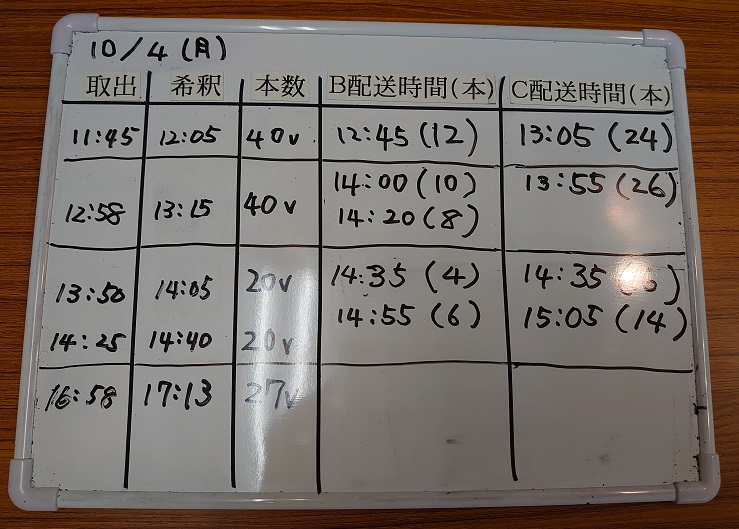 10/4(月)
取出 希釈 本数 B配送時間(本) C配送時間(本)
11:45 12:05 40v 12:45(12) 13:05(24)
14:00(10) 13:55(26)
12:58 13:15 40v 14:20(8)
13:50 14:05 20v 14:35(4) 14:35
14:25 14:40 20v 14:55(6) 15:05(14)
16:58 17:13 27v